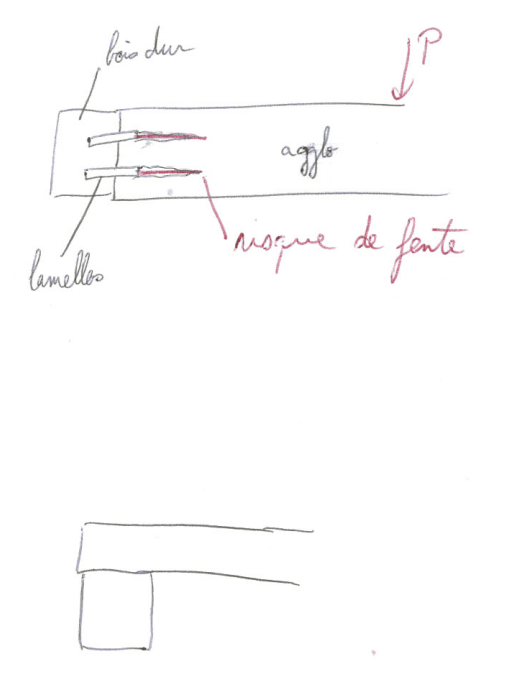 bois dur
P
agglo
risque de fente
lamelles